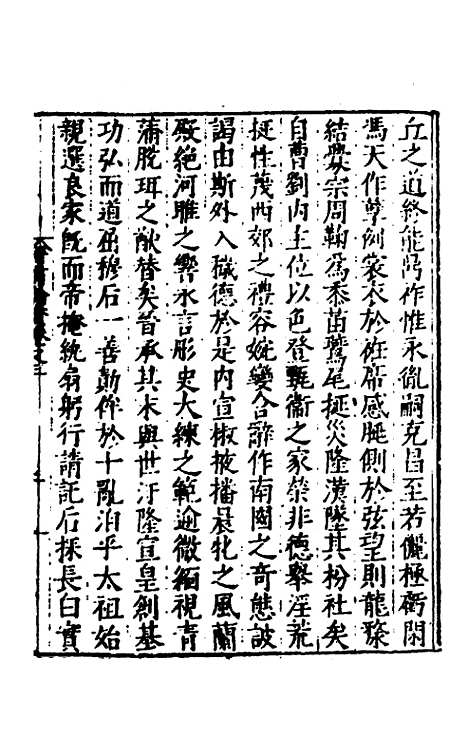 丘之道終能鼎祚惟永胤嗣克昌至若儷極虧閑
馮天作孽倒裳衣於衽席感朓側於弦望則龍漦
結釁宗周鞠爲黍苗鷰尾挻災隆漢墜其枌社矣
自曹劉內主位以色登甄衞之家榮非德舉淫荒
挺性蔑西郊之禮容婉孌含辭作南國之奇態詖
謁由斯外入穢德於是內宣椒掖播晨牝之風蘭
殿絕河雎之響永言彤史大練之範逾微緬視青
蒲脫珥之猷替矣晉承其末與世汙隆宣皇創基
功弘而道屈穆后一善勳侔於十亂洎乎太祖始
親選良家旣而帝掩紈扇躬行請託后採長白實